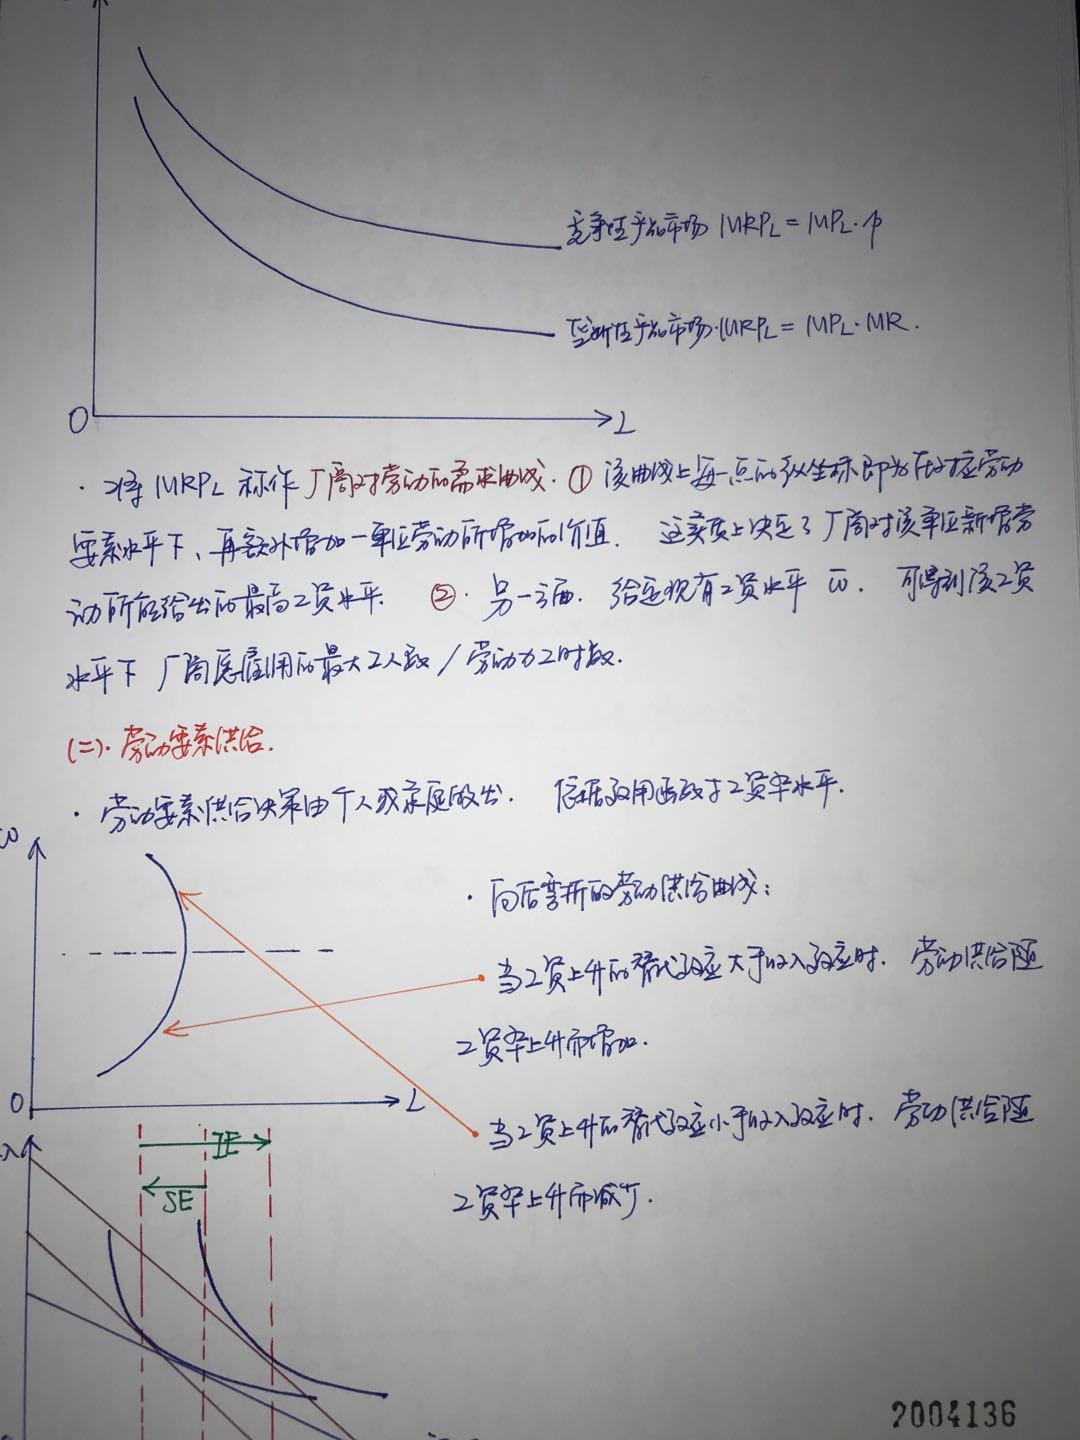 竞争性产品市场 MRP_L = MP_L · P
垄断性产品市场 · MRP_L = MP_L · MR.
O
L
· 将 MRP_L 称作 厂商对劳动的需求曲线. ① 该曲线上每一点的纵坐标即为在对应劳动
要素水平下、再额外增加一单位劳动所增加的价值. 这实质上决定了厂商对该单位新增劳
动所能给出的最高工资水平. ②. 另一方面. 给定现有工资水平 w. 可得到该工资
水平下 厂商愿雇用的最大工人数 / 劳动力工时数.
(二). 劳动要素供给.
· 劳动要素供给决策由个人或家庭做出. 依据效用函数与工资率水平.
w
· 向后弯折的劳动供给曲线:
当工资上升的替代效应大于收入效应时. 劳动供给随
工资率上升而增加.
O
L
当工资上升的替代效应小于收入效应时. 劳动供给随
工资率上升而减少.
IE
SE
2004136